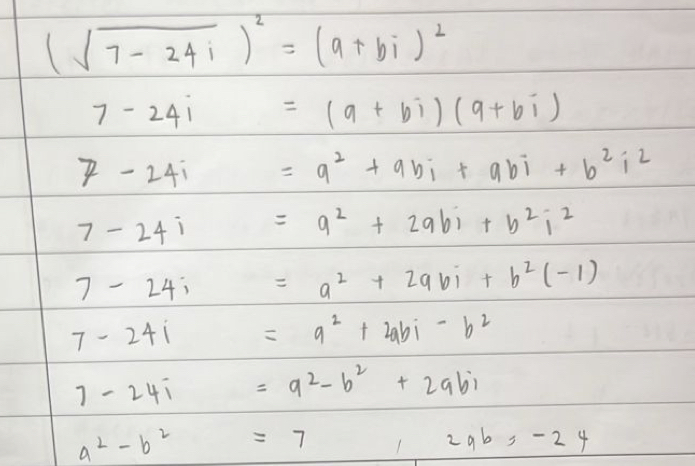 (√7 - 24i)² = (a + bi)²
7 - 24i = (a + bi)(a+bi)
7 - 24i = a² + abi + abi + b²i²
7 - 24i = a² + 2abi + b²i²
7 - 24i = a² + 2abi + b²(-1)
7 - 24i = a² + 2abi - b²
7 - 24i = a² - b² + 2abi
a² - b² = 7 , 2ab = -24